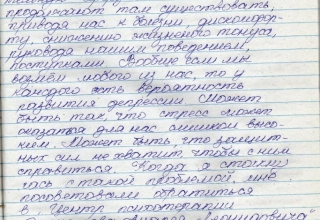 продолжают там существовать,
приводя нас к болезни, дискомфор-
ту, снижению жизненного тонуса,
руководя нашим поведением,
поступками. Вообще если мы
возьмём любого из нас, то у
каждого есть вероятность
развития депрессии. Может
быть так, что стресс может
оказаться для нас слишком высо-
ким. Может быть, что защит-
ных сил не хватит, чтобы с ним
справиться. Когда я столкну-
лась с такой проблемой, мне
посоветовали обратиться
в Центр психотерапии
Леонидовича"